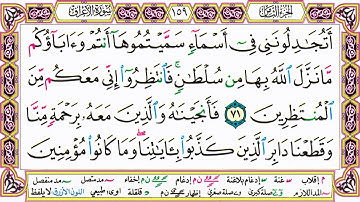 سورة الأعراف ١٥٩ الجزء الثامن
أَتُجَٰدِلُونَنِى فِىٓ أَسْمَآءٍ سَمَّيْتُمُوهَآ أَنتُمْ وَءَابَآؤُكُم
مَّا نَزَّلَ ٱللَّهُ بِهَا مِن سُلْطَٰنٍ ۚ فَٱنتَظِرُوٓا۟ إِنِّى مَعَكُم مِّنَ
ٱلْمُنتَظِرِينَ ٧١ فَأَنجَيْنَٰهُ وَٱلَّذِينَ مَعَهُۥ بِرَحْمَةٍ مِّنَّا
وَقَطَعْنَا دَابِرَ ٱلَّذِينَ كَذَّبُوا۟ بِـَٔايَٰتِنَا ۖ وَمَا كَانُوا۟ مُؤْمِنِينَ